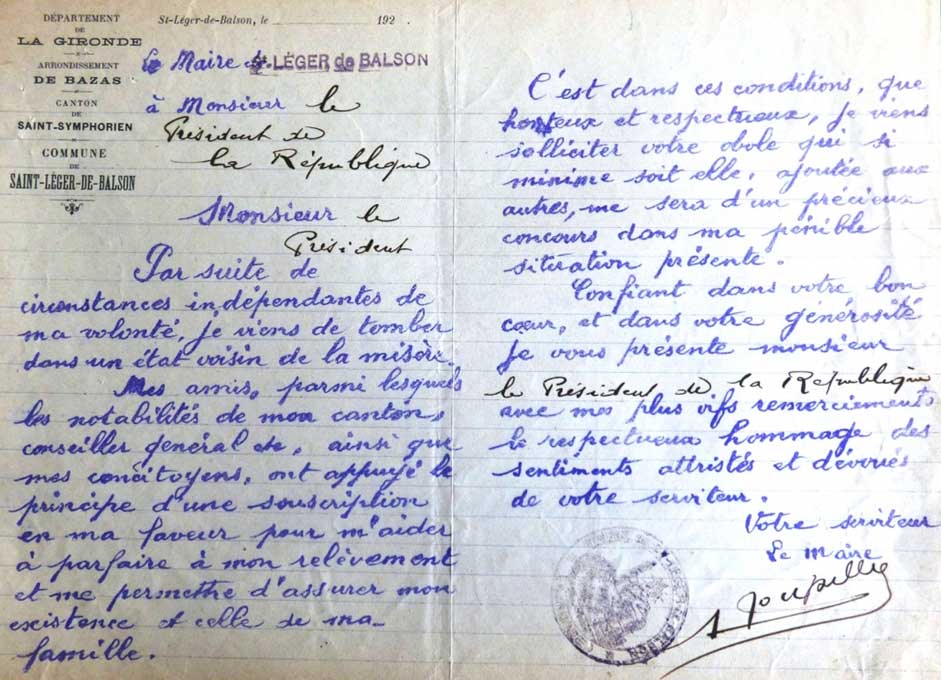 DÉPARTEMENT
DE
LA GIRONDE
ARRONDISSEMENT
DE BAZAS
CANTON
DE
SAINT-SYMPHORIEN
COMMUNE
DE
SAINT-LÉGER-DE-BALSON
St-Léger-de-Balson, le 192 .
Le Maire de St LÉGER de BALSON
à Monsieur le
Président de
la République
Monsieur le
Président
Par suite de
circonstances indépendantes de
ma volonté, je viens de tomber
dans un état voisin de la misère.
Mes amis, parmi lesquels
les notabilités de mon canton,
conseiller général etc, ainsi que
mes concitoyens, ont appuyé le
principe d'une souscription
en ma faveur pour m'aider
à parfaire à mon relèvement
et me permettre d'assurer mon
existence et celle de ma
famille.
C'est dans ces conditions, que
honteux et respectueux, je viens
solliciter votre obole qui si
minime soit elle, ajoutée aux
autres, me sera d'un précieux
concours dans ma pénible
situation présente.
Confiant dans votre bon
cœur, et dans votre générosité
je vous présente monsieur
le Président de la République
avec mes plus vifs remerciements
le respectueux hommage des
sentiments attristés et dévoués
de votre serviteur.
Votre serviteur
Le maire